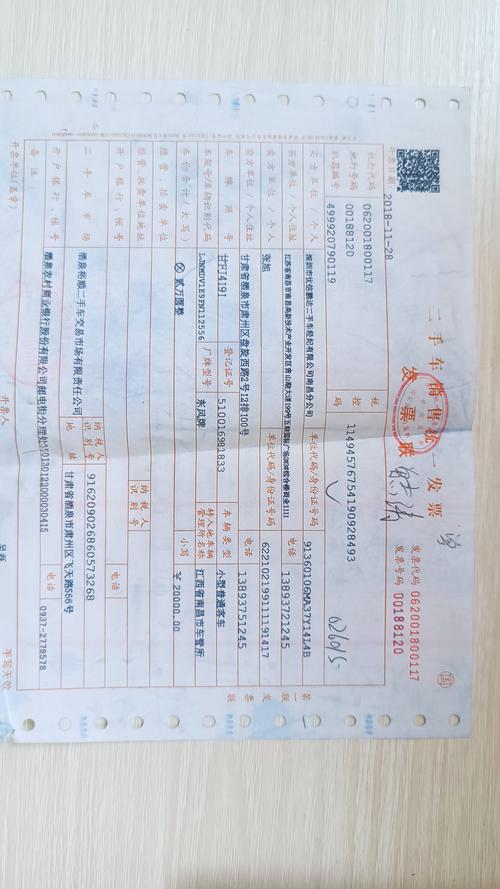 二手车销售统一发票
发票联
发票代码 062001800117
发票号码 00188120
开票日期: 2018-11-28
机打代码 062001800117
机打号码 00188120
机器编号 499920790119
税控码 11494576754190928493
买方单位/个人 深圳市优信鹏达二手车经纪有限公司南昌分公司 单位代码/身份证号码 91360106MA37Y14L4B
买方单位/个人住址 电话 13893721245
卖方单位/个人 张旭 单位代码/身份证号码 622102199111191417
卖方单位/个人住址 甘肃省酒泉市肃州区盘旋西路2号12排100号 电话 13893751245
车牌照号 甘FJ4191 登记证号 510016981833 车辆类型 小型普通客车
车架号/车辆识别代码 LJNMDV1E9FN112556 厂牌型号 东风牌 转入地车辆管理所名称 江西省南昌市车管所
车价合计(大写) ⊗贰万圆整 小写 ¥20000.00
经营、拍卖单位
经营、拍卖单位地址 纳税人识别号
开户银行、帐号 电话
二手车市场 酒泉裕顺二手车交易市场有限责任公司 纳税人识别号 916209026860573268
地址 甘肃省酒泉市肃州区飞天路566号
开户银行、帐号 酒泉农村商业银行股份有限公司邮电街分理处350130122000030415 电话 0937-2778578
备注
开票单位(盖章) 开票人 手写无效